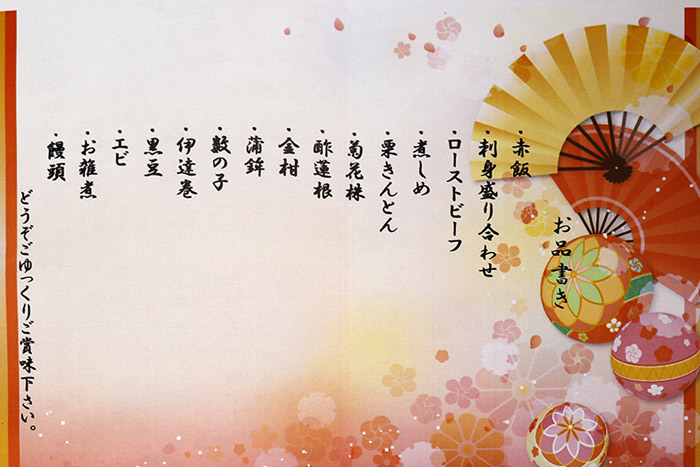 お品書き
・赤飯
・刺身盛り合わせ
・ローストビーフ
・煮しめ
・栗きんとん
・菊花株
・酢蓮根
・金柑
・蒲鉾
・数の子
・伊達巻
・黒豆
・エビ
・お雑煮
・饅頭
どうぞごゆっくりご賞味下さい。